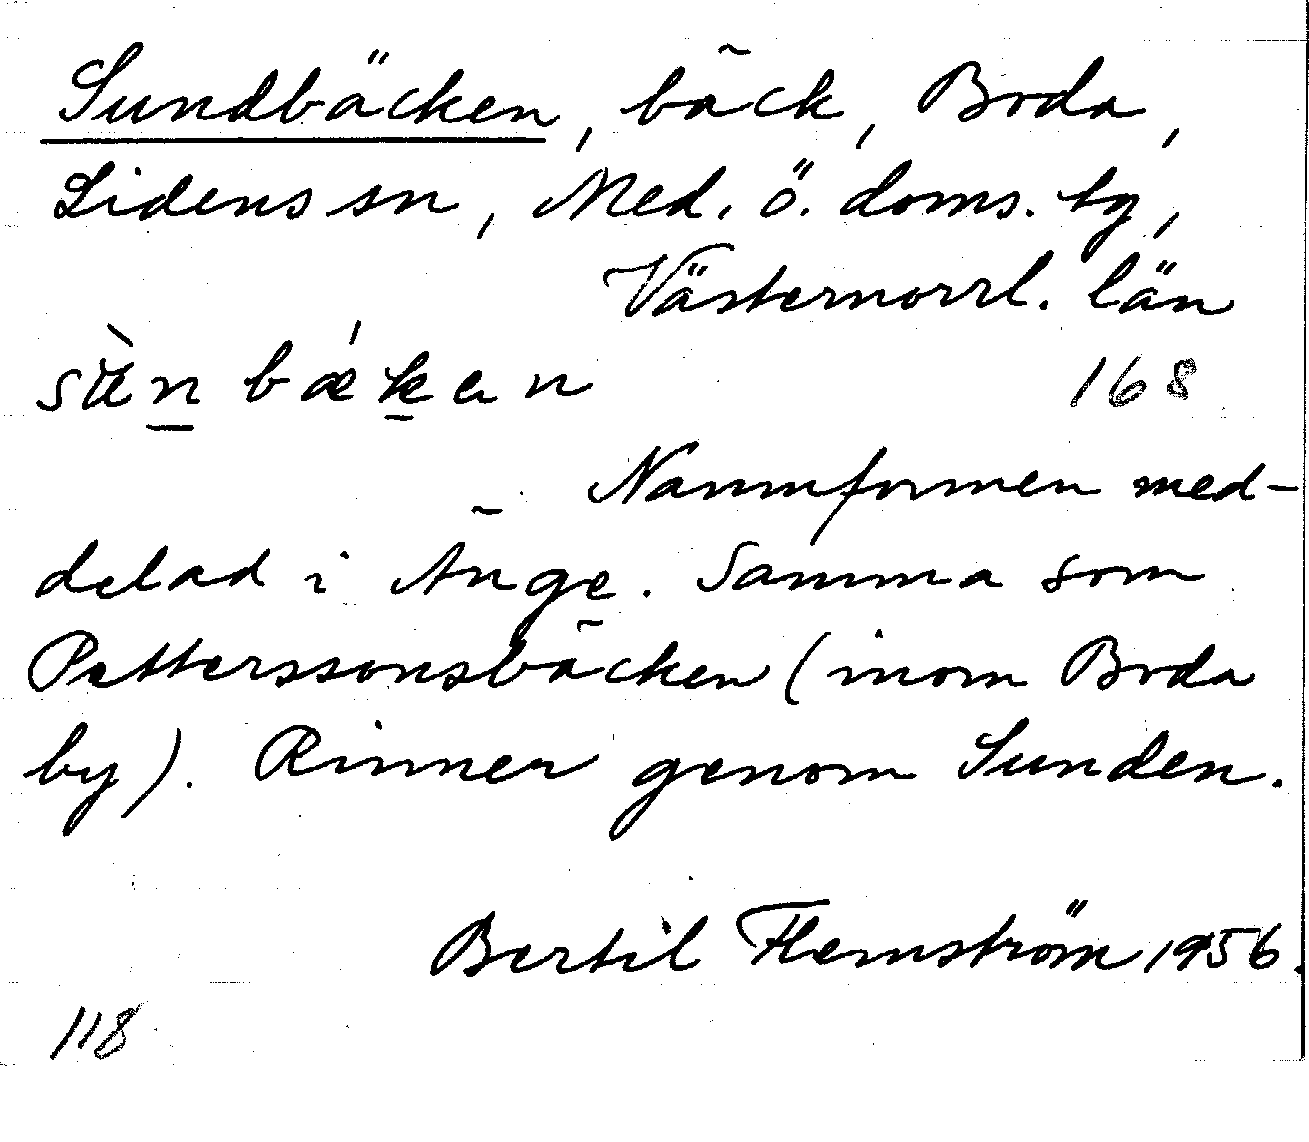 Sundbäcken, bäck, Boda,
Lidens sn, Med. ö. doms. tg,
Västernorrl. län
bǽkan
168
Namnformen med-
delad i Änge. Samma som
Petterssonsbäcken (inom Boda
by). Rinner genom Sunden.
Bertil Flemström 1956.
118